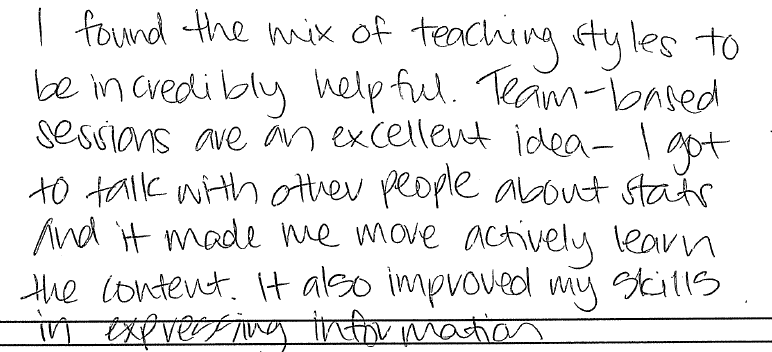 I found the mix of teaching styles to
be incredibly helpful. Team-based
sessions are an excellent idea - I got
to talk with other people about stats
And it made me more actively learn
the content. It also improved my skills
in expressing information